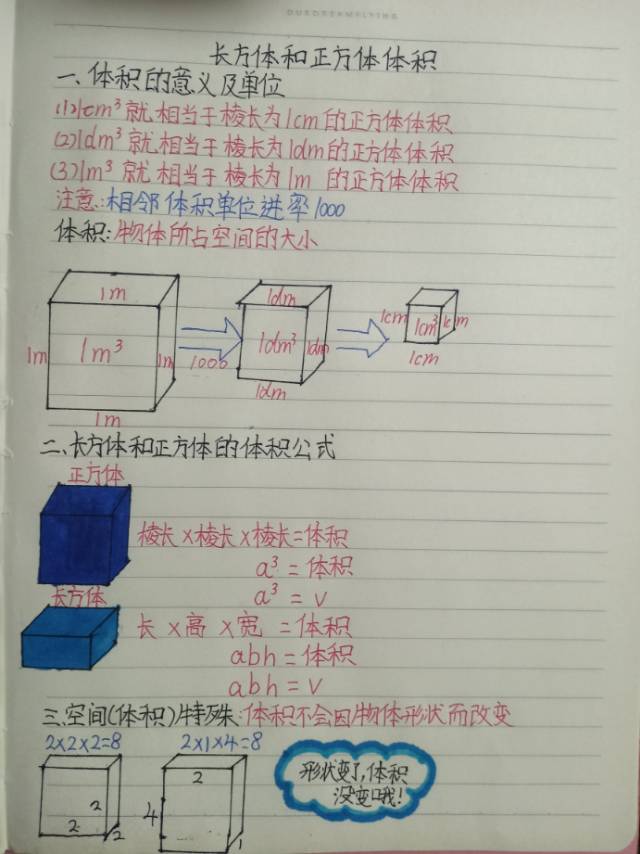 OURDREAMFLYING
长方体和正方体体积
一、体积的意义及单位
(1)1cm³就相当于棱长为1cm的正方体体积
(2)1dm³就相当于棱长为1dm的正方体体积
(3)1m³就相当于棱长为1m的正方体体积
注意:相邻体积单位进率1000
体积:物体所占空间的大小
1m
1m
1m³
1m
1m
1000
1dm
1dm³
1dm
1dm
1cm
1cm³
1cm
1cm
二、长方体和正方体的体积公式
正方体
棱长×棱长×棱长=体积
a³=体积
a³=v
长方体
长×高×宽=体积
abh=体积
abh=v
三、空间(体积)特殊:体积不会因物体形状而改变
2×2×2=8
2
2
2
2×1×4=8
2
4
1
形状变了,体积
没变哦!